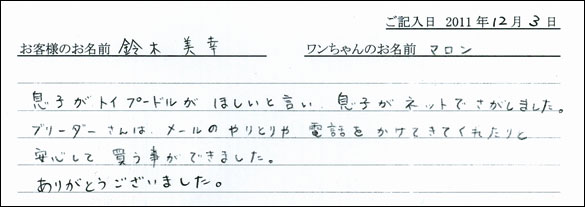 ご記入日 2011年12月3日
お客様のお名前 鈴木 美幸 ワンちゃんのお名前 マロン
息子がトイプードルが ほしいと言い、息子が ネットでさがしました。
ブリーダーさんは、メールの やりとりや 電話を かけてきてくれたりと
安心して 買う事ができました。
ありがとうございました。